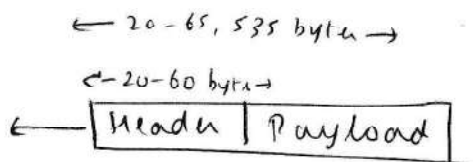 20-65,535 bytes
20-60 bytes
Header Payload